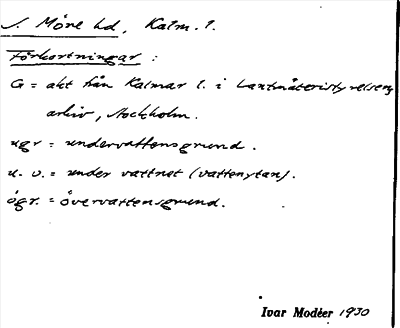 S. Möre hd, Kalm. l.
Förkortningar:
G = akt från Kalmar l. i Lantmäteristyrelsens
arkiv, Stockholm.
ugr = undervattensgrund.
u. v. = under vattnet (vattenytan).
ögr. = övervattensgrund.
Ivar Modéer 1930